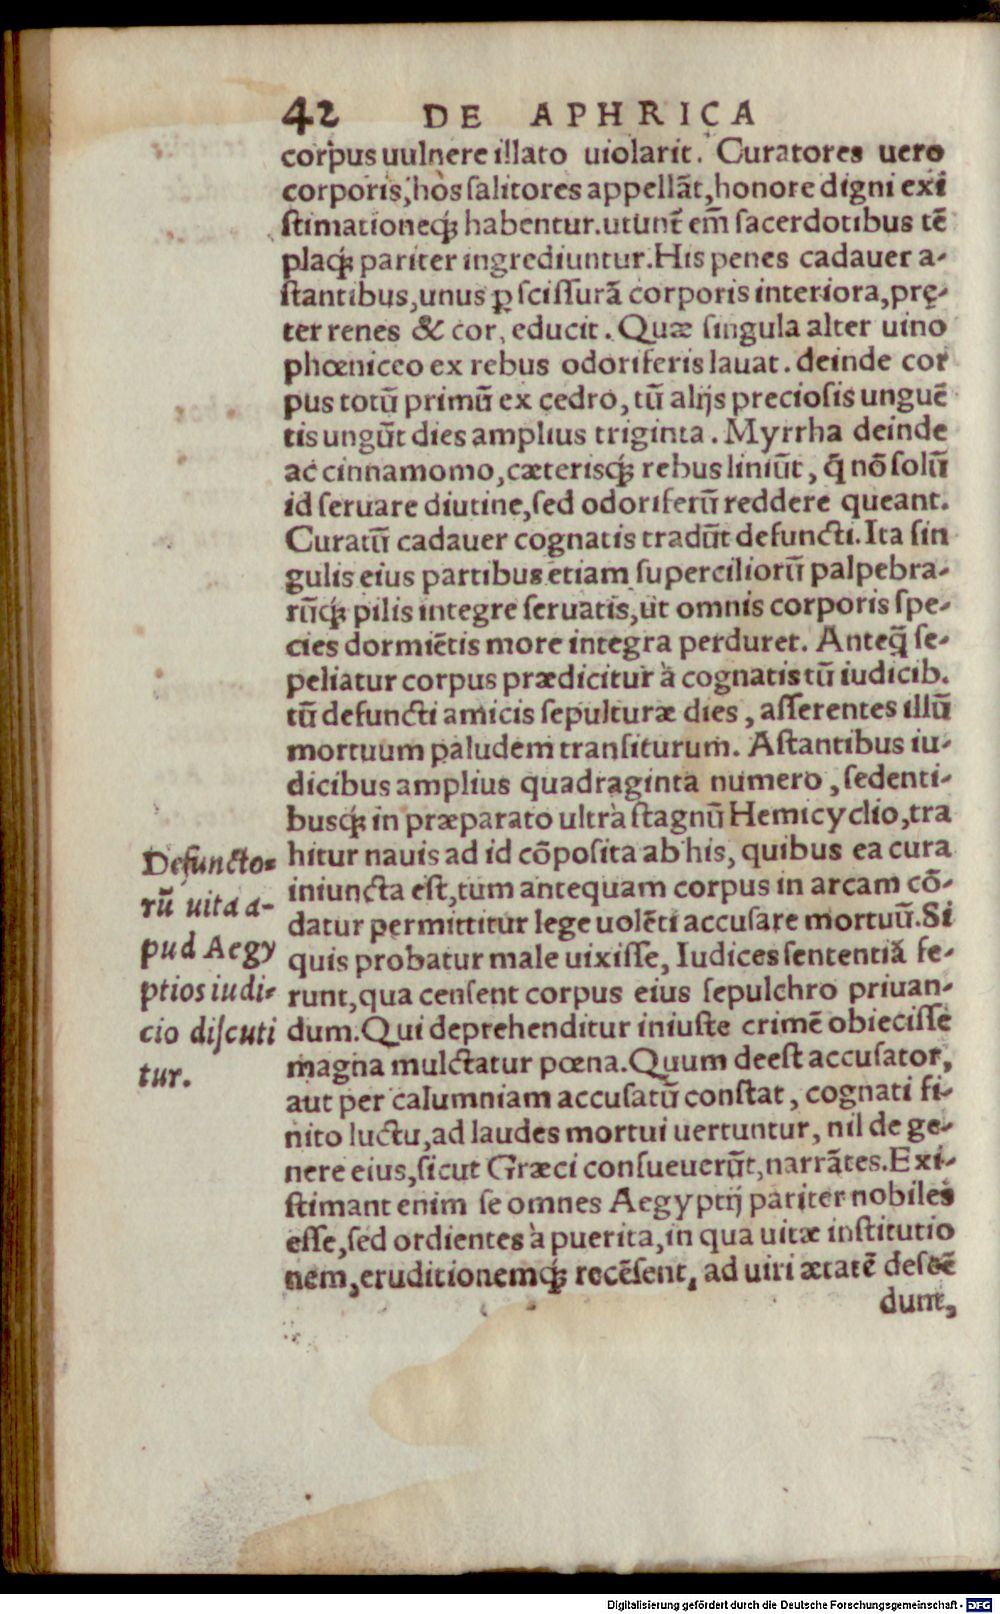 42 DE APHRICA
corpus uulnere illato uiolarit. Curatores uero
corporis, hos salitores appellãt, honore digni exi
stimationeq́; habentur. utunt̃ em̃ sacerdotibus tẽ
plaq́; pariter ingrediuntur. His penes cadauer a-
stantibus, unus ꝑ scissurã corporis interiora, prę-
ter renes & cor, educit. Quæ singula alter uino
phœniceo ex rebus odoriferis lauat. deinde cor
pus totũ primũ ex cedro, tũ alijs preciosis unguẽ
tis ungũt dies amplius triginta. Myrrha deinde
ac cinnamomo, cæterisq́; rebus liniũt, q̃ nõ solũ
id seruare diutine, sed odoriferũ reddere queant.
Curatũ cadauer cognatis tradũt defuncti. Ita sin
gulis eius partibus etiam superciliorũ palpebra-
rũq́; pilis integre seruatis, ut omnis corporis spe-
cies dormiẽtis more integra perduret. Anteq̃ se-
peliatur corpus prædicitur à cognatis tũ iudicib.
tũ defuncti amicis sepulturæ dies, asserentes illũ
mortuum paludem transiturum. Astantibus iu-
dicibus amplius quadraginta numero, sedenti-
busq́; in præparato ultrà stagnũ Hemicyclio, tra
hitur nauis ad id cõposita ab his, quibus ea cura
iniuncta est, tum antequam corpus in arcam cõ-
datur permittitur lege uolẽti accusare mortuũ. Si
quis probatur male uixisse, Iudices sententiã fe-
runt, qua censent corpus eius sepulchro priuan-
dum. Qui deprehenditur iniuste crimẽ obiecisse
magna mulctatur pœna. Quum deest accusator,
aut per calumniam accusatũ constat, cognati fi-
nito luctu, ad laudes mortui uertuntur, nil de ge-
nere eius, sicut Græci consueuerũt, narrãtes. Exi-
stimant enim se omnes Aegyptij pariter nobiles
esse, sed ordientes à puerita, in qua uitæ institutio
nem, eruditionemq́; recẽsent, ad uiri ætatẽ descẽ
dunt,
Defuncto-
rũ uita a-
pud Aegy
ptios iudi-
cio discuti
tur.
Digitalisierung gefördert durch die Deutsche Forschungsgemeinschaft - DFG